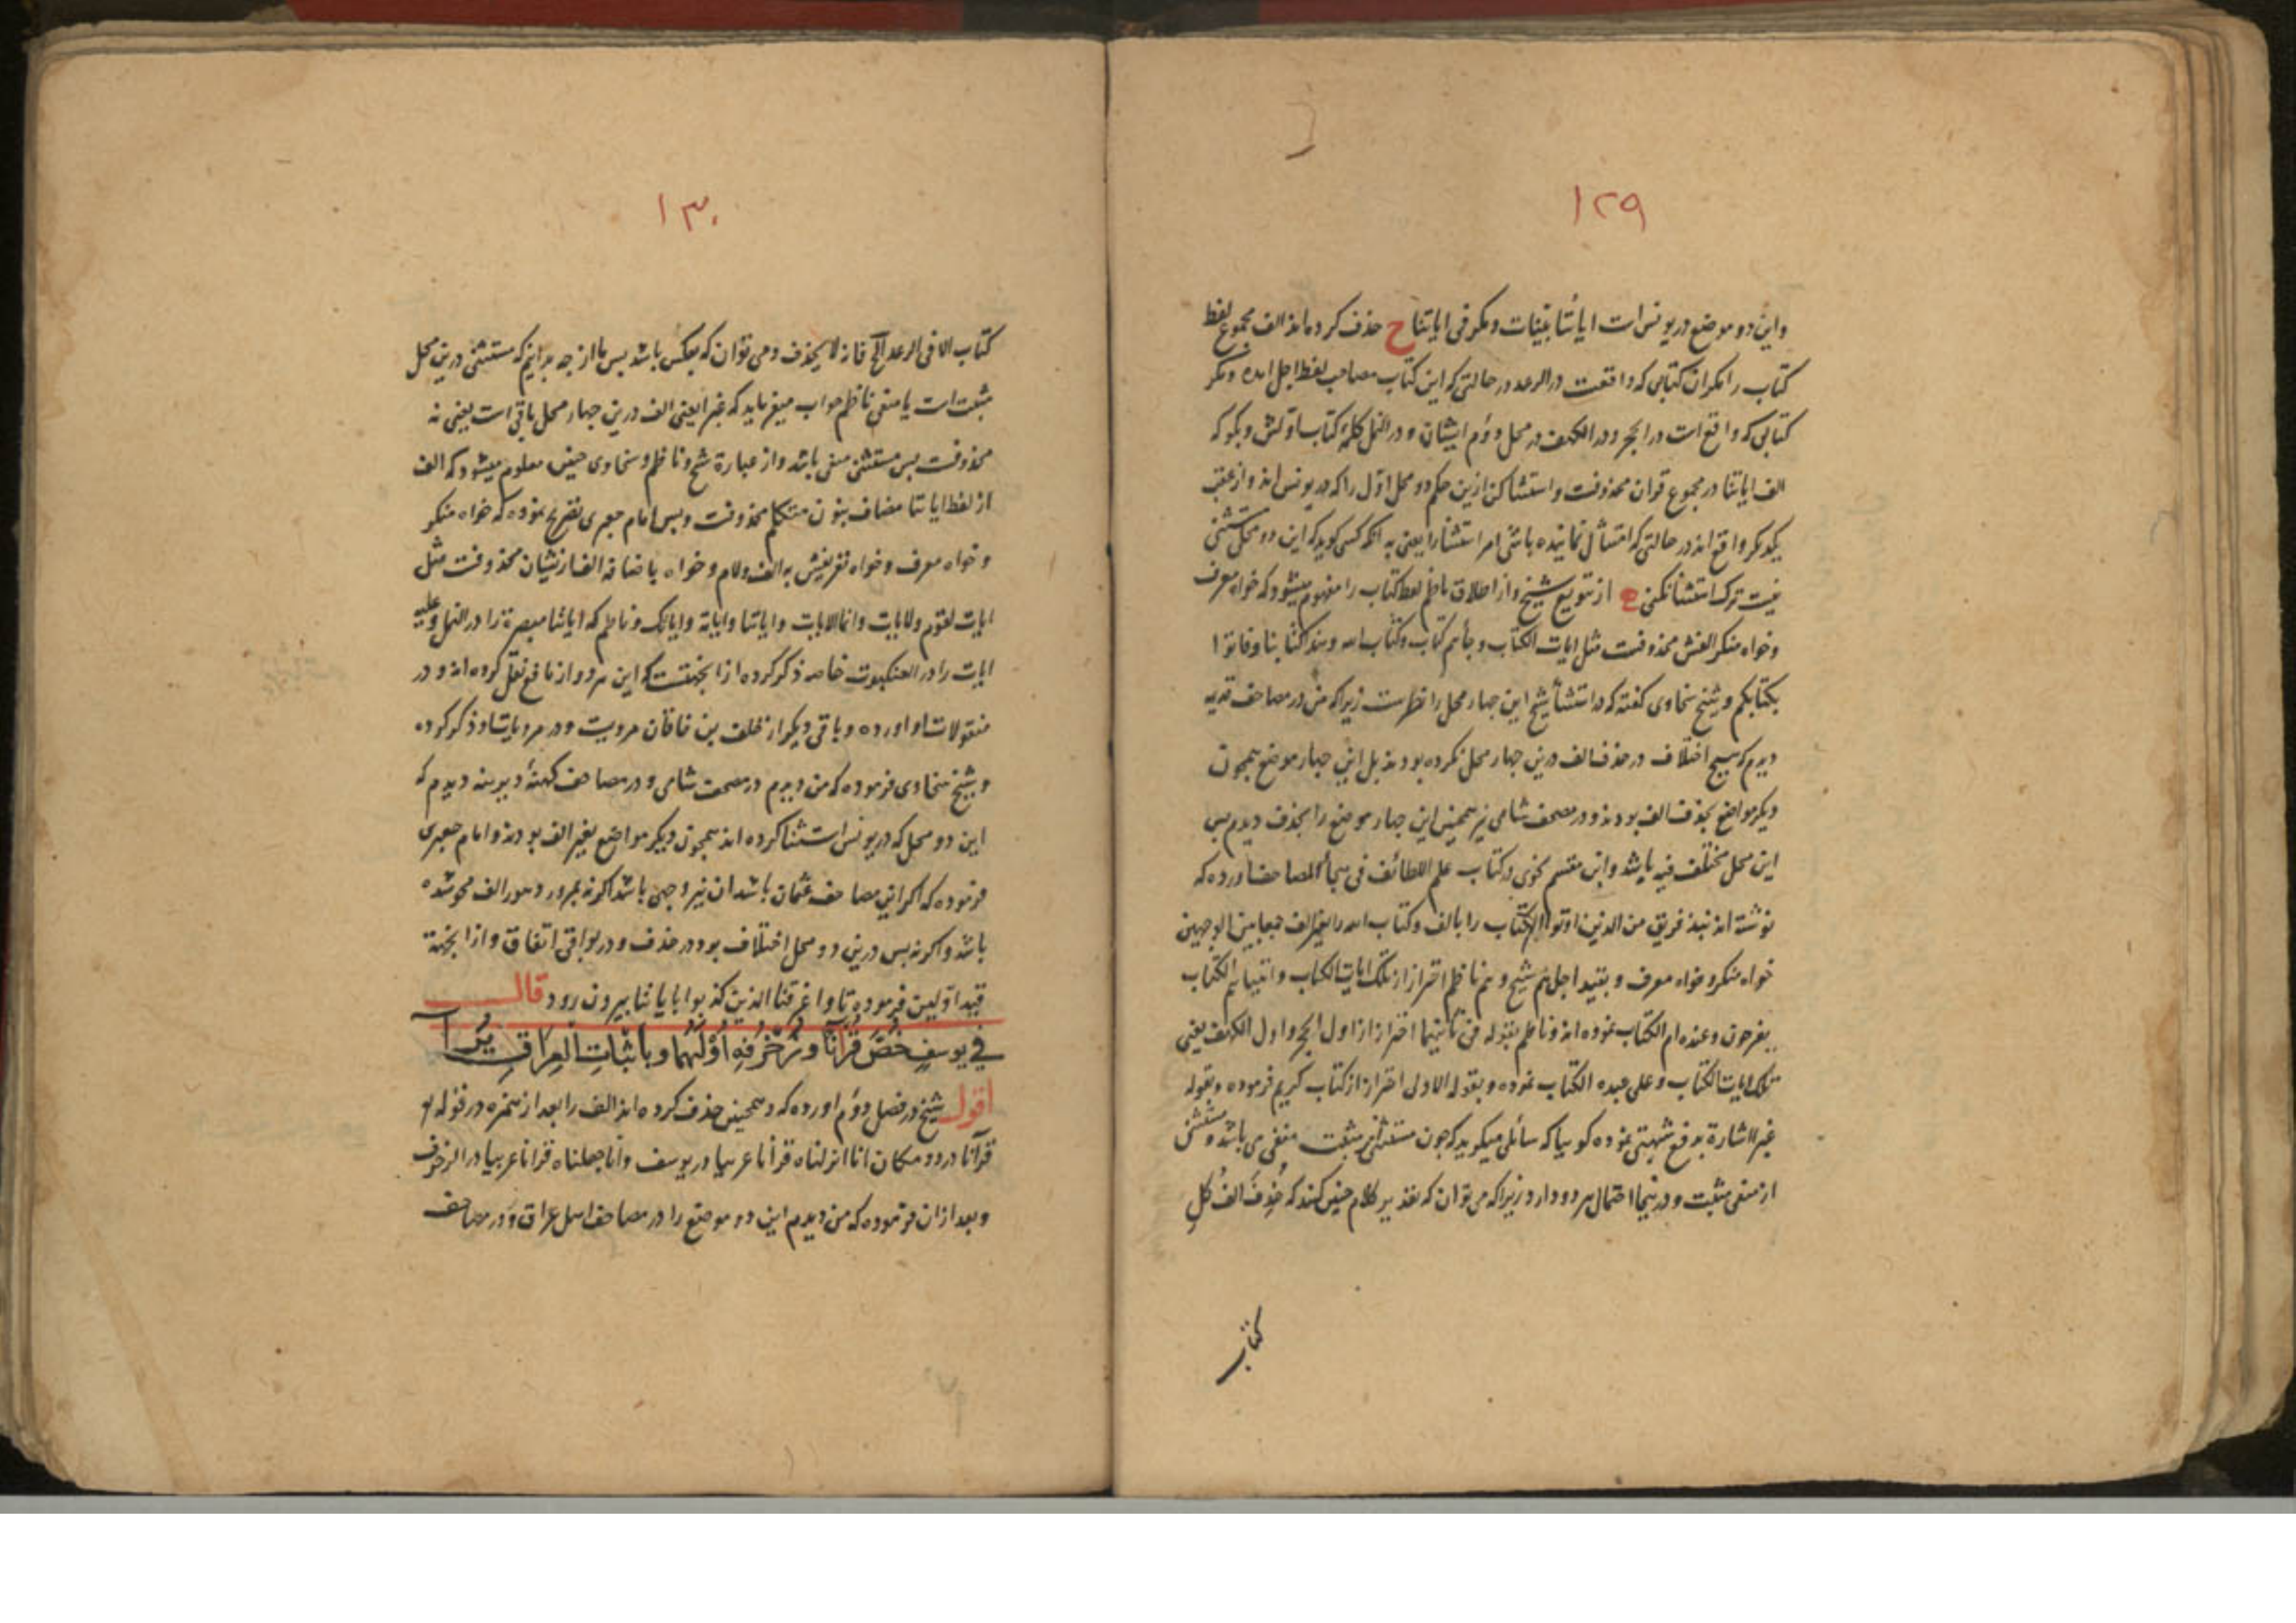 ۱۲۹
واین دو موضع در یونس است ایاتنا بینات ومکر فی ایاتنا ح حذف کرده‌اند الف مجموع لفظ
کتاب را مکر ان کتابی که واقعست در الرعد در حالتی که این کتاب مصاحب لفظ اجل امده ومکر
کتابی که واقع است در الحجر ودر الکهف در محل دوم ایشان ودر النمل کلمهٔ کتاب اولش وبکو که
الف ایاتنا در مجموع قران محذوفست واستثنا کن ازین حکم دو محل اول را که در یونس اند واز عقب
یکدیکر واقع اند در حالتی که امتثال نماینده باشی امر استثنا را یعنی به انکه کسی کوید که این دو محل مستثنی
نیست ترک استثنا نکنی از تنویع شیخ واز اطلاق ناظم لفظ کتاب را مفهوم میشود که خواه معرف
وخواه منکر الفش محذوفست مثل ایات الکتاب وجأهم کتاب وکتاب الله وهذا کتابنا وفاتوا
بکتابکم وشیخ سخاوی کفته که در استثنأ شیخ این چهار محل را نظرست زیرا که من در مصاحف قدیمه
دیدم که هیچ اختلاف در حذف الف درین چهار محل نکرده بودند بل این چهار موضع همچون
دیکر مواضع بحذف الف بودند ودر مصحف شامی نیز همچنین این چهار موضع را بحذف دیدم پس
این محل مختلف فیه باشد وابن مقسم نحوی در کتاب علم اللطائف فی هجأ المصاحف اورده که
نوشته اند نبذ فریق من الذین اوتوا الکتاب را بالف وکتاب الله را بغیر الف جمعا بین الوجهین
خواه منکر وخواه معرف وبقید اجل هم شیخ وهم ناظم احتراز از تلک ایات الکتاب واتیناهم الکتاب
یفرحون وعنده ام الکتاب نموده اند وناظم بقوله فی ثانیهما احتراز از اول الحجر واول الکهف یعنی
تلک ایات الکتاب وعلی عبده الکتاب نموده وبقوله الاولی احتراز از کتاب کریم فرموده وبقوله
غیر الاشارة بدفع شبهتی نموده کوییا که سائلی میکوید که چون مستثنی از مثبت منفی می باشد ومستثنی
از منفی مثبت ودر اینجا احتمال هر دو دارد زیرا که می توان که تقدیر کلام چنین کنند که حُذِفَ الفُ کُلِ
کتاب
۱۳۰
کتاب الا فی الرعد الخ فانه لا یحذف ومی توان که بعکس باشد پس ما از چه برانیم که مستثنی درین محل
مثبت است یا منفی ناظم جواب میفرماید که غبر ایعنی الف درین چهار محل باقی است یعنی نه
محذوفست پس مستثنی منفی باشد واز عبارة شیخ وناظم وسخاوی چنین معلوم میشود که الف
از لفظ ایاتنا مضاف بنون متکلم محذوفست وبس امام جعبری تصریح نموده که خواه منکر
وخواه معرف وخواه تعریفش به الف ولام وخواه باضافه الف ازیشان محذوفست مثل
ایات لقوم ولایات وانما الایات وایاتنا وایاته وایاتک وناظم که ایاتنا مبصرة را در النمل وعلیه
ایات را در العنکبوت خاصه ذکر کرده از انجهتست که این هر دو از نافع نقل کرده اند ودر
منقولات او اورده وباقی دیکر از خلف بن خاقان مرویست ودر مرویات او ذکر کرده
وشیخ سخاوی فرموده که من دیدم در مصحف شامی ودر مصاحف کهنهٔ دیرینه دیدم که
این دو محل که در یونس استثنا کرده اند همچون دیکر مواضع بغیر الف بودند وامام جعبری
فرموده که اکر این مصاحف عثمان باشد ان نیز وجهی باشد اکر نه بمرور دهور الف محو شده
باشد واکر نه پس درین دو محل اختلاف بود در حذف ودر بواقی اتفاق واز انجهة
قید اولیین فرموده تا واغرقنا الذین کذبوا بایاتنا بیرون رود قال
في يوسفٍ خُصَّ قُرآنًا وزُخرُفِهِ أُوْلٰهُمَا وباثباتِ العِراقِ يُرَا
اقول شیخ در فصل دوم اورده که وهمچنین حذف کرده اند الف را بعد از همزه در قوله تع
قرآنا در دو مکان انا انزلناه قرأنا عربیا در یوسف وانا جعلناه قرانا عربیا در الزخرف
وبعد ازان فرموده که من دیدم این دو موضع را در مصاحف اهل عراق ودر مصاحف